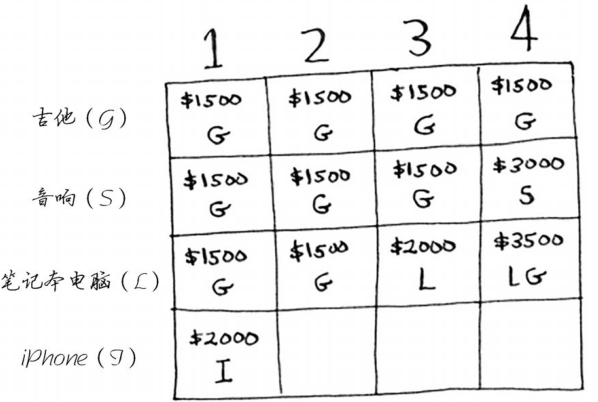 1 2 3 4
吉他（G） $1500 G $1500 G $1500 G $1500 G
音响（S） $1500 G $1500 G $1500 G $3000 S
笔记本电脑（L） $1500 G $1500 G $2000 L $3500 LG
iPhone（I） $2000 I